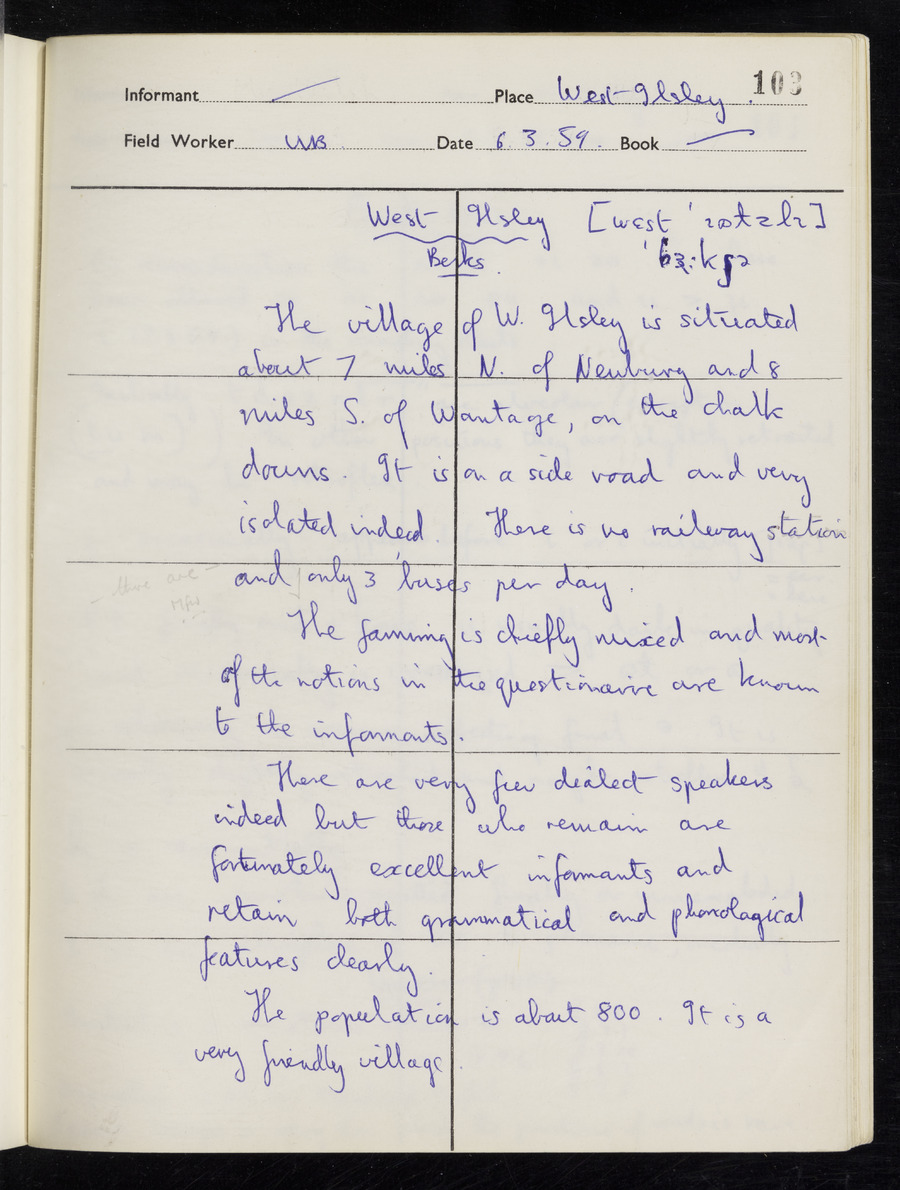 103
Informant Place West Ilsley.
Field Worker WB Date 6.3.59. Book
West Ilsley
Berks.
The village of W. Ilsley is situated
about 7 miles N. of Newbury and 8
miles S. of Wantage, on the chalk
downs. It is on a side road and very
isolated indeed There is no railway station
and only 3 buses per day.
- there are -
The farming is chiefly mixed and most
of the notions in the questionnaire are known
to the informants.
There are very few dialect speakers
indeed but those who remain are
fortunately excellent informants and
retain both grammatical and phonological
features clearly.
The population is about 800. It is a
very friendly village.